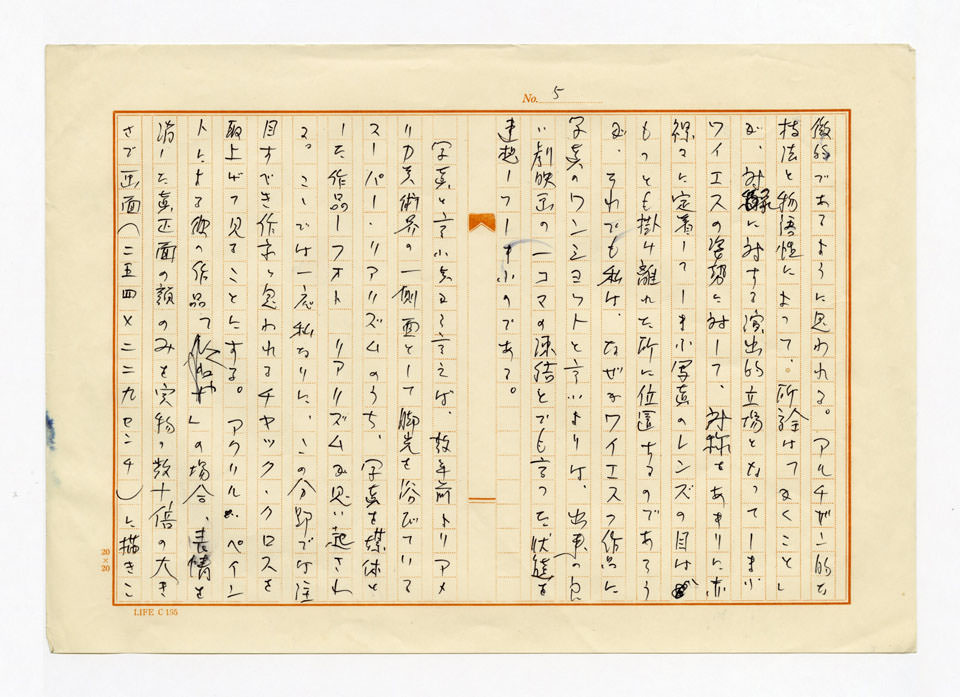 No. 5
徴的であるように思われる。アルチザン的な
技法と物語性によって、所詮はフェくことし
が、対象に対する演出的立場となってしまう
ワイエスの姿勢に対して、対称をあまりに赤
裸々に定着してしまう写真のレンズの目は
もっとも掛け離れた所に位置するのであろう
が、それでも私は、なぜかワイエスの作品に
写真のワンショットと言うよりは、出来の良
い劇映画の一コマの凍結とでも言った状態を
連想してしまうのである。
写真と言う点で言えば、数年前よりアメ
リカ美術界の一側面として脚光を浴びている
スーパー・リアリズムのうち、写真を媒体と
した作品-フォトリアリズムが思い起され
る。ここでは一応私なりに、この分野では注
目すべき作家と思われるチャック・クロスを
取上げて見ることにする。アクリル ペイン
トによる彼の作品 の場合、表情を
消した真正面の顔のみを実物の数十倍の大き
さで画面(二五四×二二九センチ)に描きこ
20×20
LIFE C 155